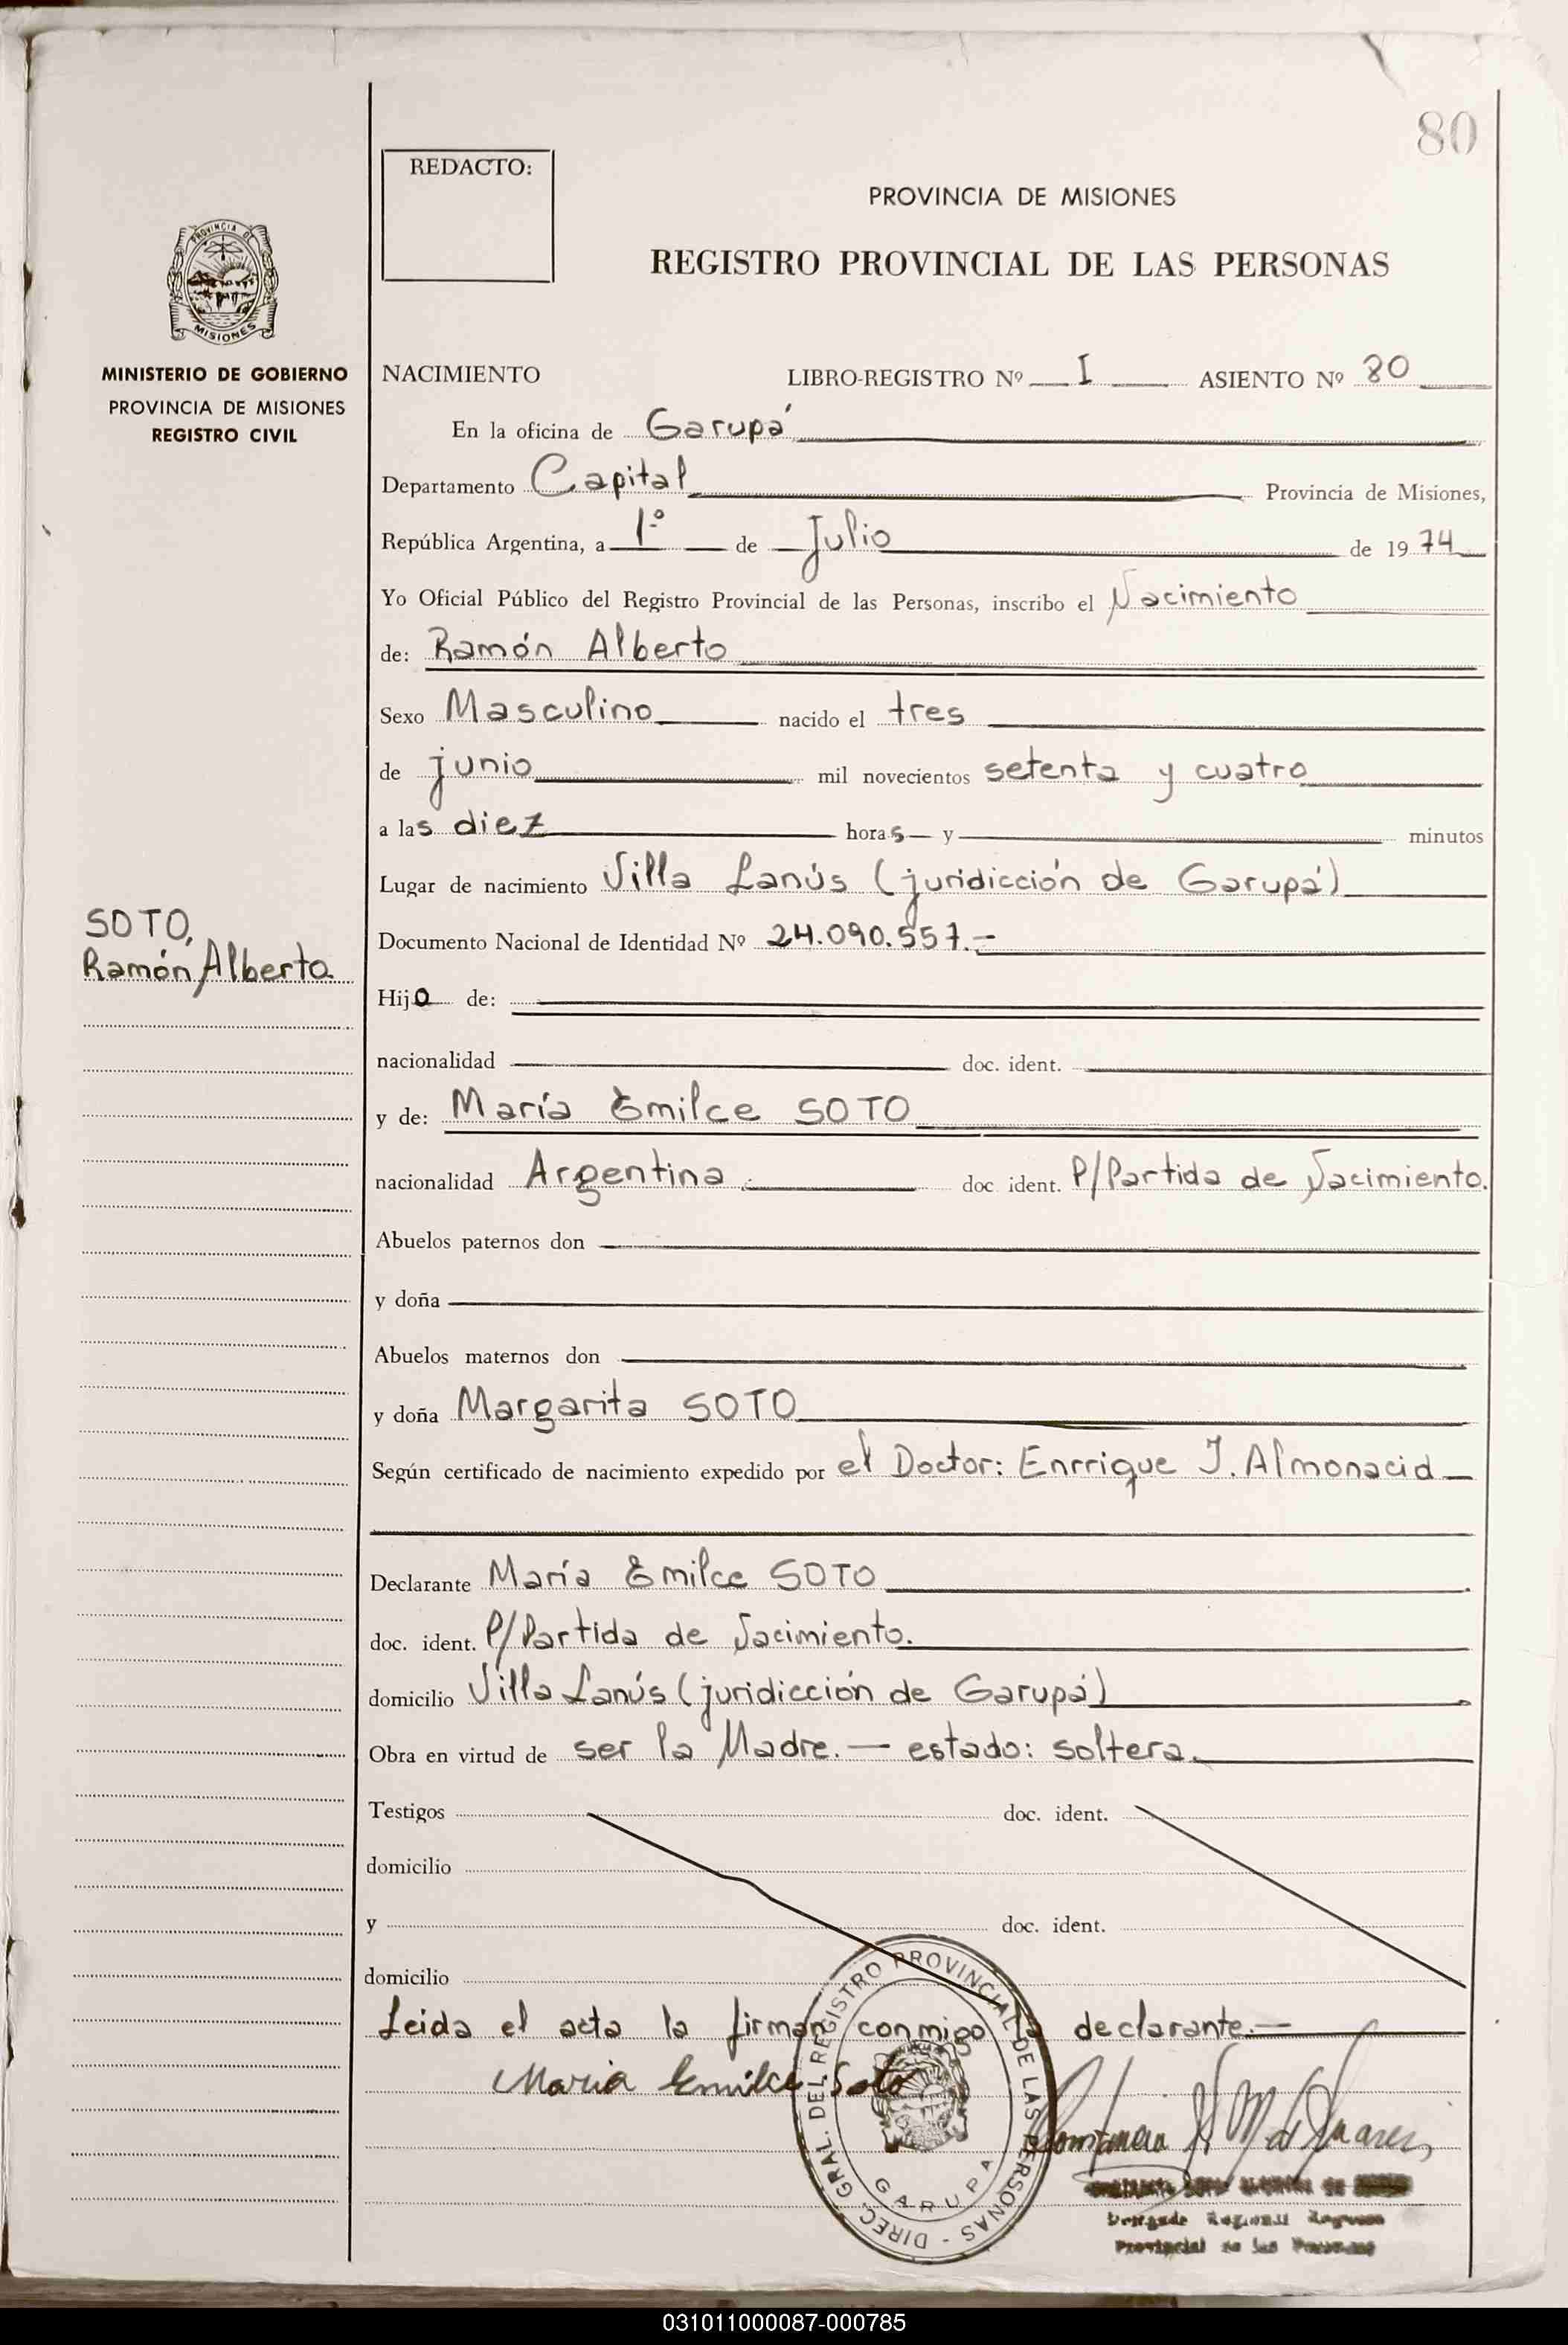 80
REDACTO:
PROVINCIA DE MISIONES
REGISTRO PROVINCIAL DE LAS PERSONAS
PROVINCIA DE
MISIONES
MINISTERIO DE GOBIERNO
PROVINCIA DE MISIONES
REGISTRO CIVIL
NACIMIENTO LIBRO-REGISTRO Nº I ASIENTO Nº 80
En la oficina de Garupá
Departamento Capital Provincia de Misiones,
República Argentina, a 1º de Julio de 1974
Yo Oficial Público del Registro Provincial de las Personas, inscribo el Nacimiento
de: Ramón Alberto
Sexo Masculino nacido el tres
de junio mil novecientos setenta y cuatro
a las diez horas y minutos
Lugar de nacimiento Villa Lanús (juridicción de Garupá)
SOTO,
Ramón Alberto
Documento Nacional de Identidad Nº 24.090.557.-
Hijo de:
nacionalidad doc. ident.
y de: María Emilce SOTO
nacionalidad Argentina doc. ident. P/Partida de Nacimiento.
Abuelos paternos don
y doña
Abuelos maternos don
y doña Margarita SOTO
Según certificado de nacimiento expedido por el Doctor: Enrrique J. Almonacid
Declarante María Emilce SOTO
doc. ident. P/Partida de Nacimiento.
domicilio Villa Lanús (juridicción de Garupá)
Obra en virtud de ser la Madre.— estado: soltera.
Testigos doc. ident.
domicilio
y doc. ident.
domicilio
Leida el acta la firman conmigo la declarante.—
Maria Emilce Soto
DIREC. GRAL. DEL REGISTRO PROVINCIAL DE LAS PERSONAS -
GARUPA
Provincial de las Personas
031011000087-000785